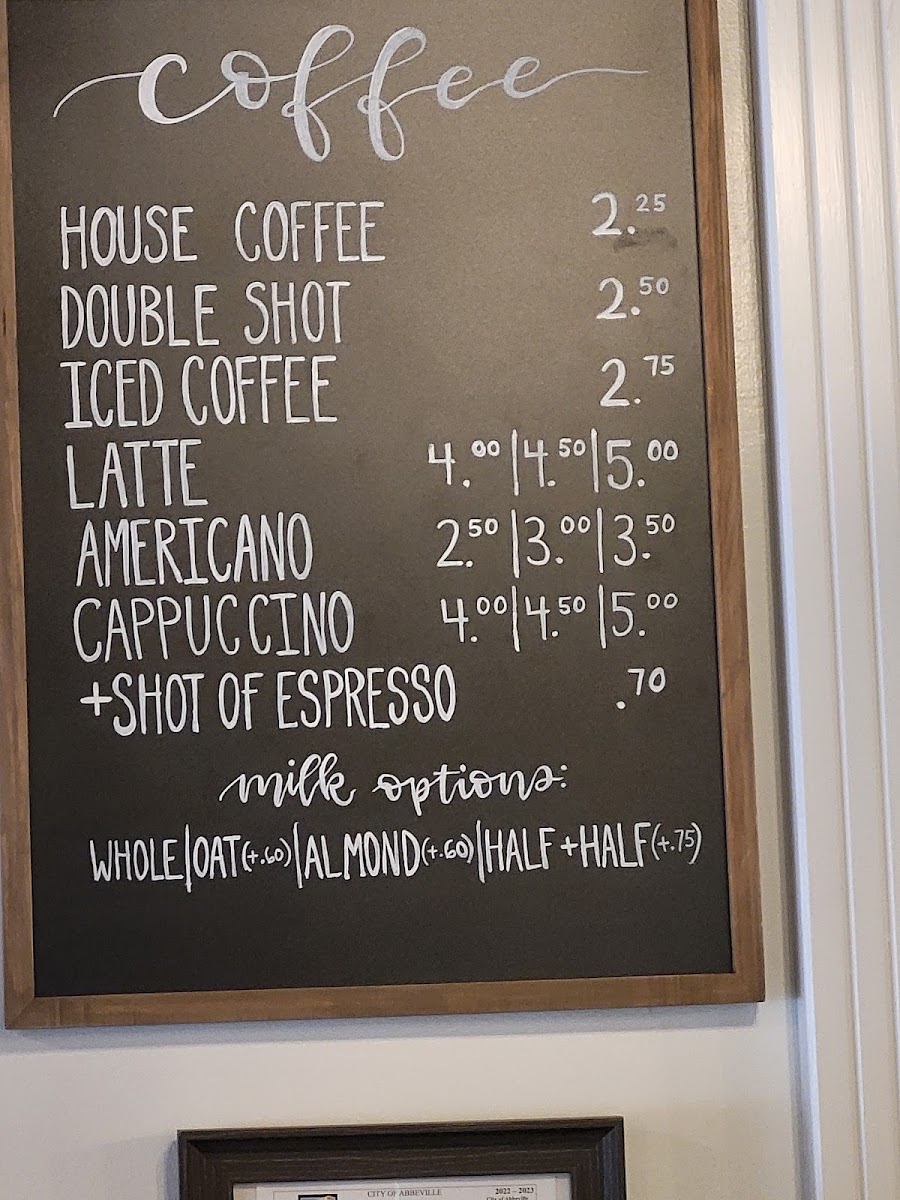 coffee
HOUSE COFFEE 2.25
DOUBLE SHOT 2.50
ICED COFFEE 2.75
LATTE 4.00|4.50|5.00
AMERICANO 2.50|3.00|3.50
CAPPUCCINO 4.00|4.50|5.00
+SHOT OF ESPRESSO .70
milk options:
WHOLE|OAT(+.60)|ALMOND(+.60)|HALF+HALF(+.75)
CITY OF ABBEVILLE 2022 - 2023
City of Abbeville